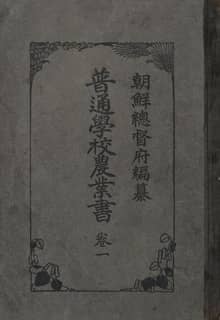 朝鮮總督府編纂
普通學校農業書 卷一